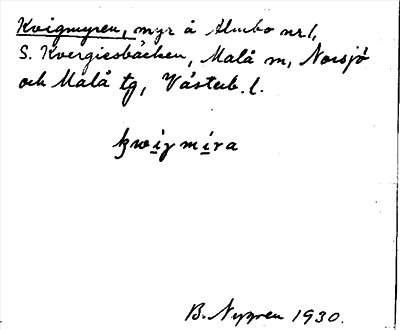 Kvigmyren, myr å Almbo nr 1,
S. Kvergiesbäcken, Malå m, Norsjö
och Malå tg, Västerb. l.
kwigmira
B. Nygren 1930.